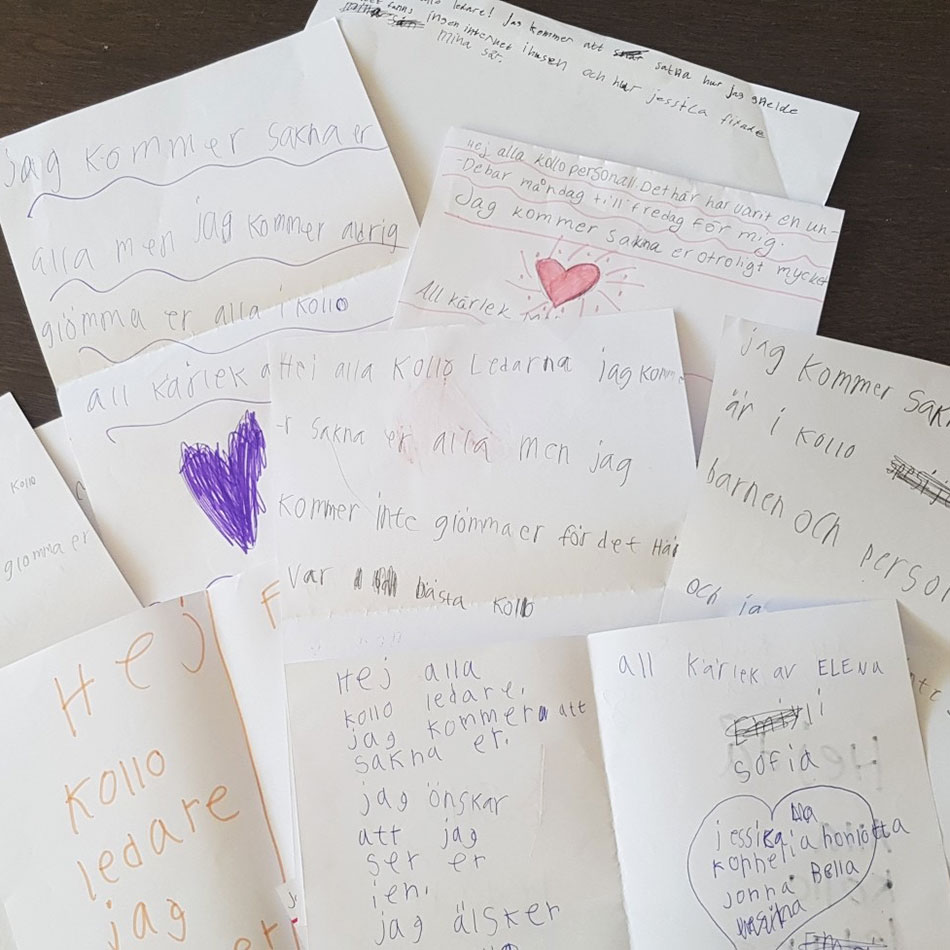 ledare! Jag kommer att sakna hur jag spelde
fanns ingen internet i husen och hur jessica fixade
mina sår.
jag kommer sakna er
alla men jag kommer aldrig
glömma er alla i kollo
all kärlek a
Hej alla kollopersonal. Det här har varit en un-
-Debar måndag till fredag för mig.
Jag kommer sakna er otroligt mycket
All kärlek
Hej alla Kollo Ledarna jag komme
-r sakna er alla men jag
kommer inte glömma er för det Här
var bästa kollo
jag kommer sakn
är i kollo
barnen och person
och ja
kollo
glömma er
Hej
kollo
ledare
jag
Hej alla
kollo ledare.
jag kommer att
sakna er.
jag önskar
att jag
ser er
jen.
jag älsker
all kärlek av ELENA
sofia
jessika
jonna Bella